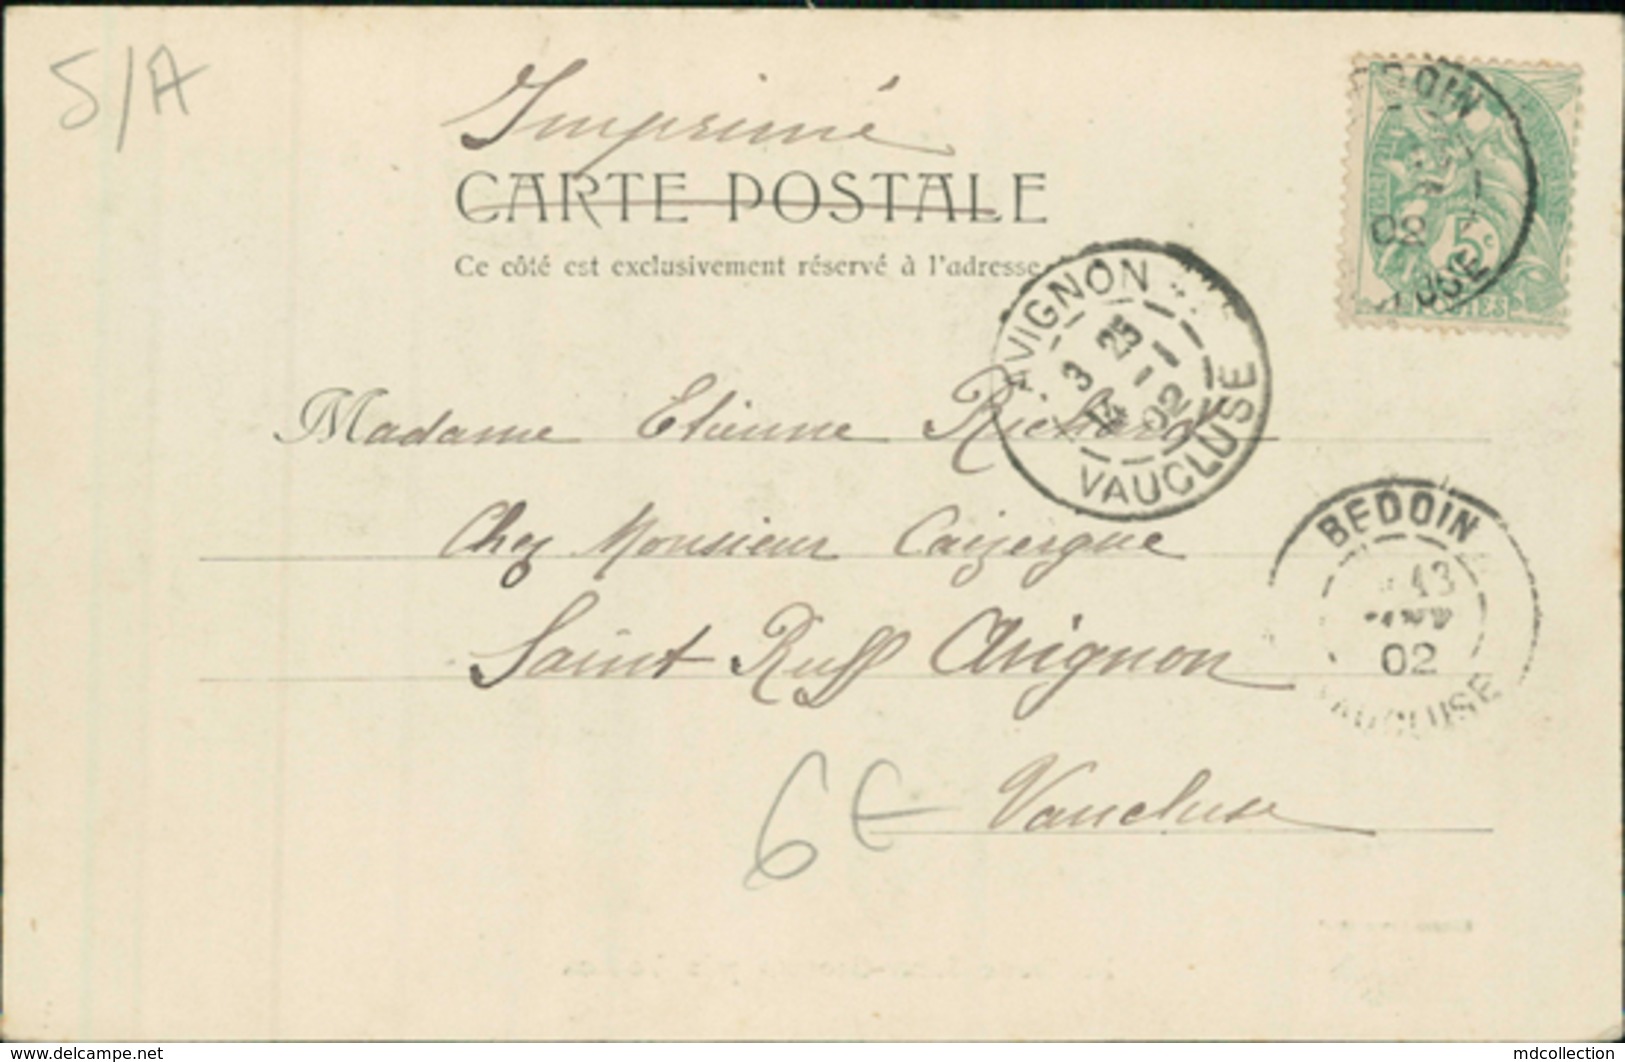 S/A
Imprimé
CARTE POSTALE
Ce côté est exclusivement réservé à l'adresse
AVIGNON
3 25
14 - 1
02
VAUCLUSE
EDOIN
02
5c
POSTES
Madame Etienne Richard
Chez Monsieur Caizergue
Saint Ruff Avignon
Vaucluse
BEDOIN
13
02
VAUCLUSE
6€
www.delcampe.net
mdcollection